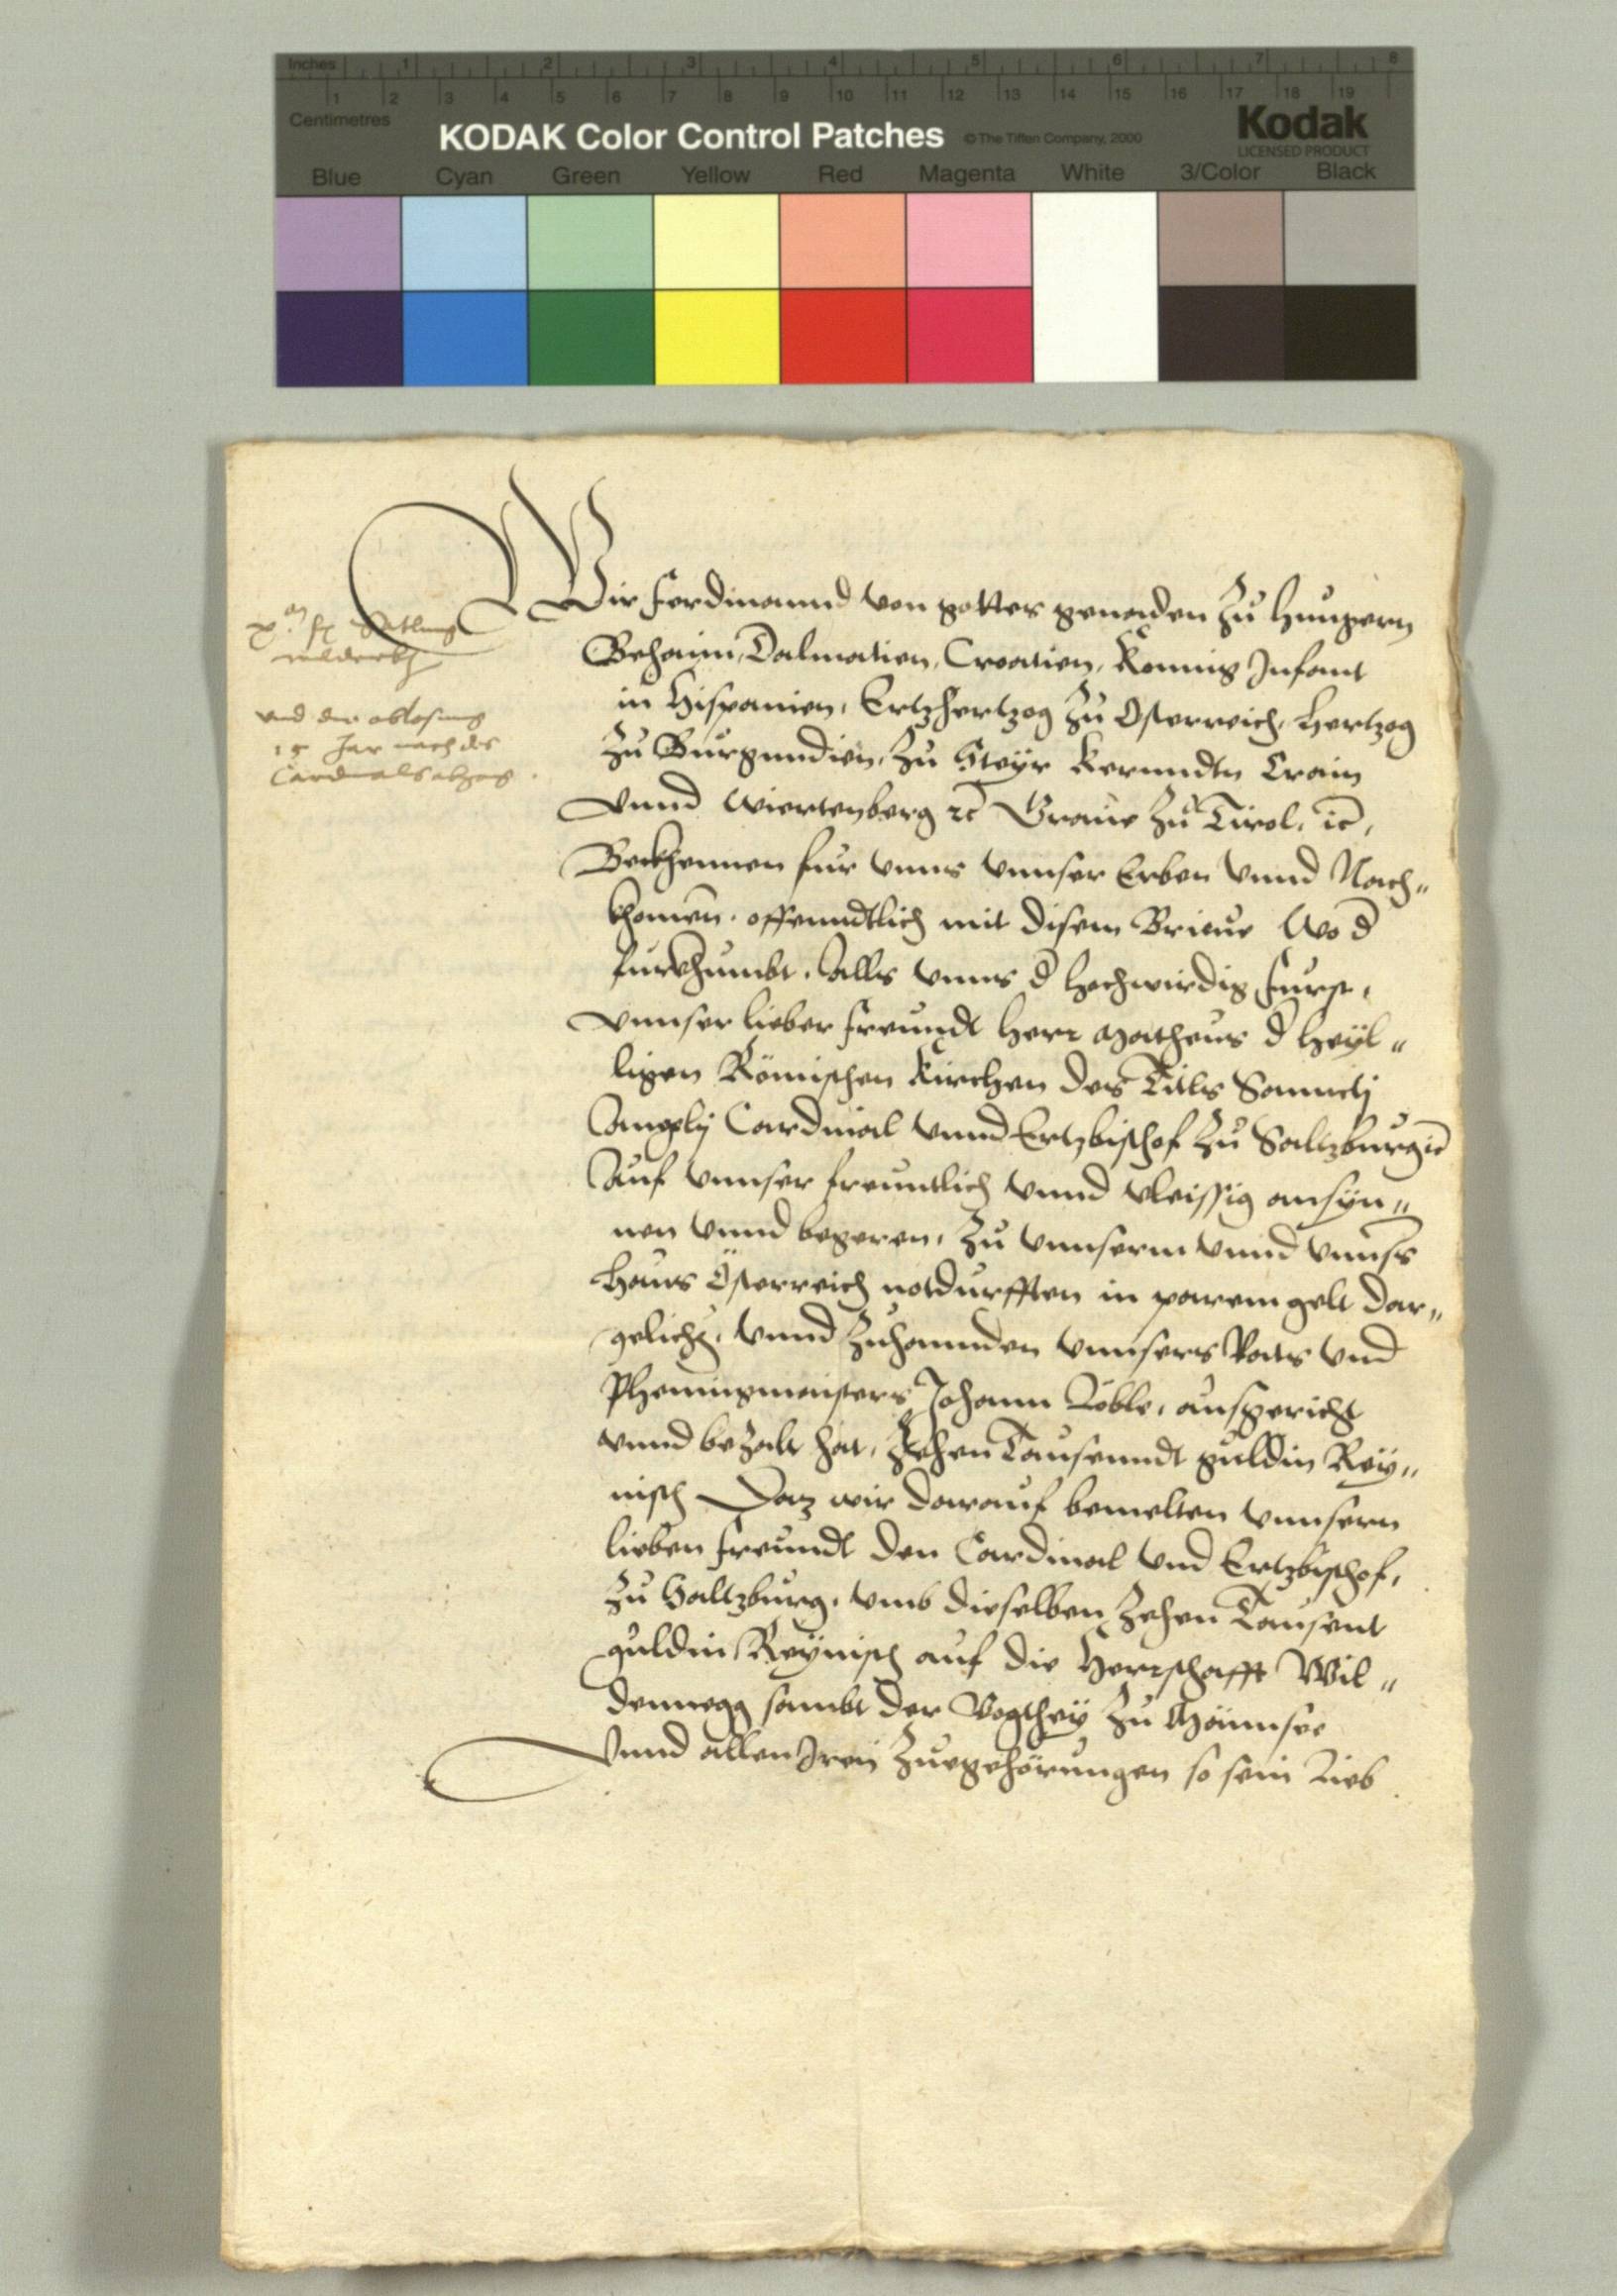 Inches 1 2 3 4 5 6 7 8
1 2 3 4 5 6 7 8 9 10 11 12 13 14 15 16 17 18 19
Centimetres
KODAK Color Control Patches © The Tiffen Company, 2000 Kodak
LICENSED PRODUCT
Blue Cyan Green Yellow Red Magenta White 3/Color Black
Wir Ferdinannd von gottes genaden zu Hungern
Behaim, Dalmatien, Croatien, Konnig Infant
in Hispanien, Ertzhertzog zu Osterreich, Hertzog
zu Burgundien, zu Steyr Kerndtn Crain
vnnd Wiertenberg ꝛc Graue zu Tirol, ꝛc,
Bekhennen fur vnns vnnser Erben vnnd Nach„
khomen. offenndtlich mit disem Brieue Wo d
furkhumbt. Alls vnns d hochwirdig furst,
vnnser lieber freundt Herr Matheus d heyl„
ligen Römischen Kirchen des Titls Sanncti
Anngely Cardinal vnnd Ertzbischof zu Saltzburg ꝛc
Auf vnnser freuntlich vnnd vleissig ansyn„
nen vnnd begeren, zu vnnserm vnnd vnnsers
Haus Österreich notdurfften in parem gelt dar„
gelichen, vnnd zuhannden vnnsers Rats vnd
Phenningmaisters Johann Löble, ausgericht
vnnd bezalt hat, Zehen Tausenndt guldin Rey„
nisch Daz wir darauf bemelten vnnsern
lieben freundt den Cardinal vnd Ertzbischof,
zu Saltzburg, vmb dieselben zehen Tausent
guldin Reynisch auf die Herrschafft Wil„
dennegg sambt der Vogthey zu Männsee
Vnnd allen Iren zuegehörungen so sein Lieb
vnd der ablosung
15 Jar nach des
Cardinals abgang.